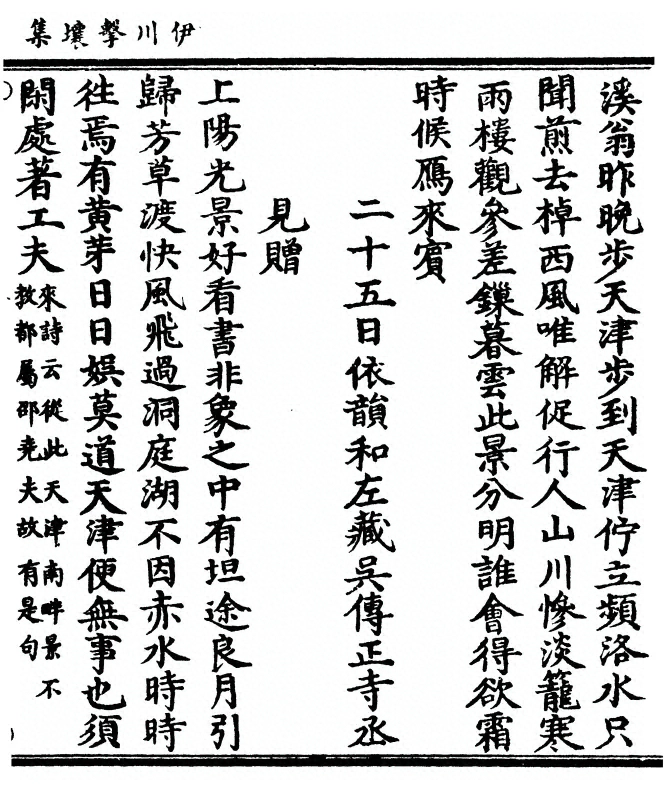 伊川擊壤集
溪翁昨晚步天津步到天津佇立頻洛水只
聞煎去棹西風唯解促行人山川慘淡籠寒
雨樓觀參差鏁暮雲此景分明誰會得欲霜
時候鴈來賓
二十五日依韻和左藏吳傳正寺丞
見贈
上陽光景好看書非象之中有坦途良月引
歸芳草渡快風飛過洞庭湖不因赤水時時
徃焉有黃芽日日娯莫道天津便無事也須
閑處著工夫來詩云從此天津南畔景不
教都屬邵尭夫故有是句